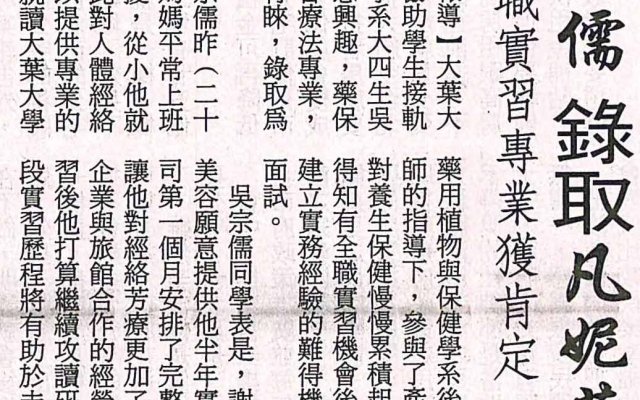 儒 錄取凡妮
職實習專業獲肯定
導】大葉大
協助學生接軌
學系大四生吳
感興趣，藥保
療法專業，
睞，錄取爲
宗儒昨（二十
媽平常上班
，從小他就
此對人體經絡
以提供專業的
就讀大葉大學
藥用植物與保健學系後
師的指導下，參與了產
對養生保健慢慢累積起
得知有全職實習機會後
建立實務經驗的難得機
面試。
吳宗儒同學表是，謝
美容願意提供他半年實
司第一個月安排了完整
讓他對經絡芳療更加了
企業與旅館合作的經營
習後他打算繼續攻讀研
段實習歷程將有助於未